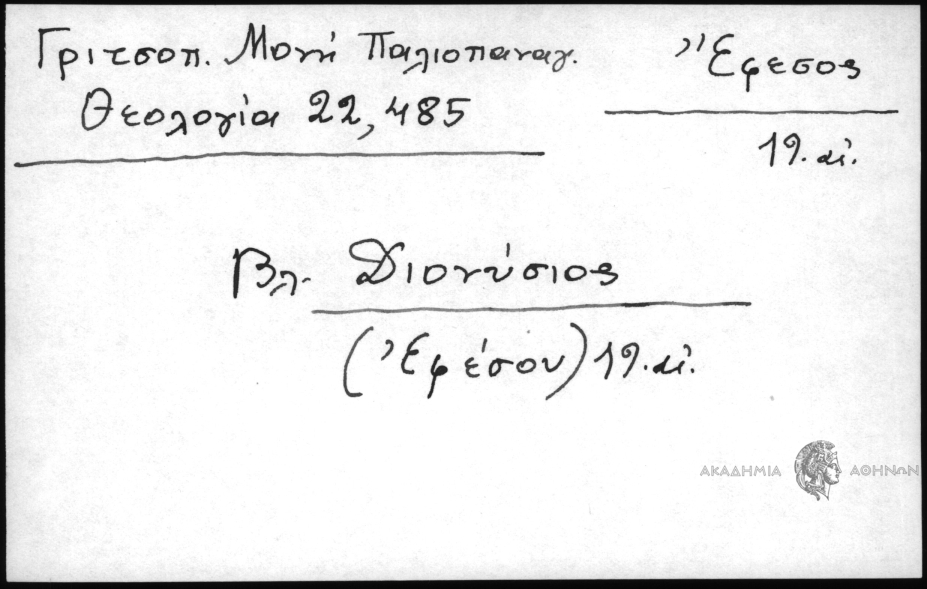 Γριτσοπ. Μονή Παλιοπαναγ.
Θεολογία 22, 485
Ἔφεσος
19. αἰ.
Βλ. Διονύσιος
(Ἐφέσου) 19. αἰ.
ΑΚΑΔΗΜΙΑ ΑΘΗΝΩΝ